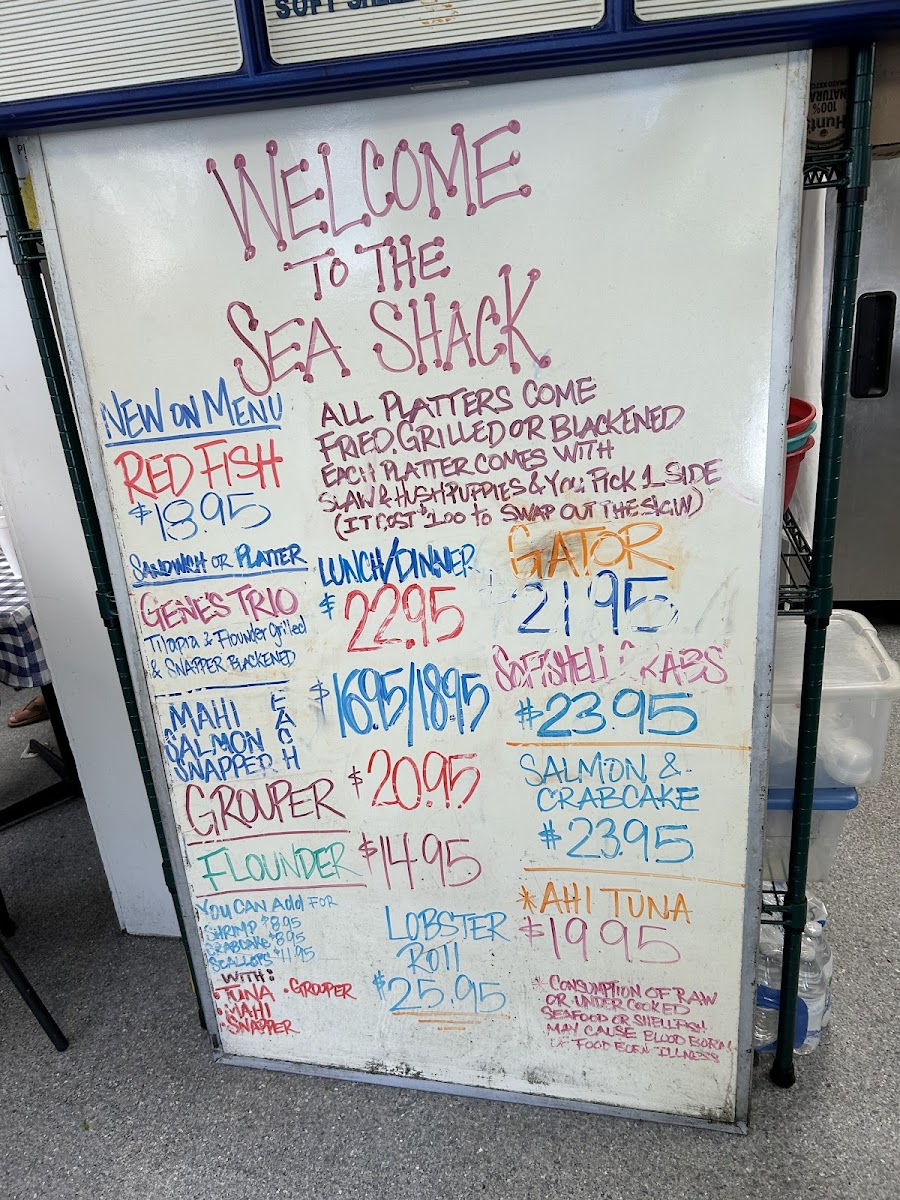 SOFT SHELL
100%
NATURAL
Hunt's
WELCOME
TO THE
SEA SHACK
NEW ON MENU
RED FISH
$18.95
ALL PLATTERS COME
FRIED, GRILLED OR BLACKENED
EACH PLATTER COMES WITH
SLAW & HUSHPUPPIES & YOU PICK 1 SIDE
(IT COST $1.00 TO SWAP OUT THE SLAW)
SANDWICH OR PLATTER
GENE'S TRIO
Tilapia & Flounder Grilled
& SNAPPER BLACKENED
LUNCH/DINNER
$22.95
MAHI
SALMON
SNAPPER
EACH
$16.95/18.95
GROUPER $20.95
FLOUNDER $14.95
YOU CAN Add FOR
SHRIMP $8.95
CRABCAKE $8.95
SCALLOPS $11.95
WITH:
• TUNA • GROUPER
• MAHI
• SNAPPER
LOBSTER
ROll
$25.95
GATOR
21.95
SOFTSHELL CRABS
$23.95
SALMON &
CRABCAKE
$23.95
*AHI TUNA
$19.95
* CONSUMPTION OF RAW
OR UNDER COOKED
SEAFOOD OR SHELLFISH
MAY CAUSE BLOOD BORN
OF FOOD BORN ILLNESS